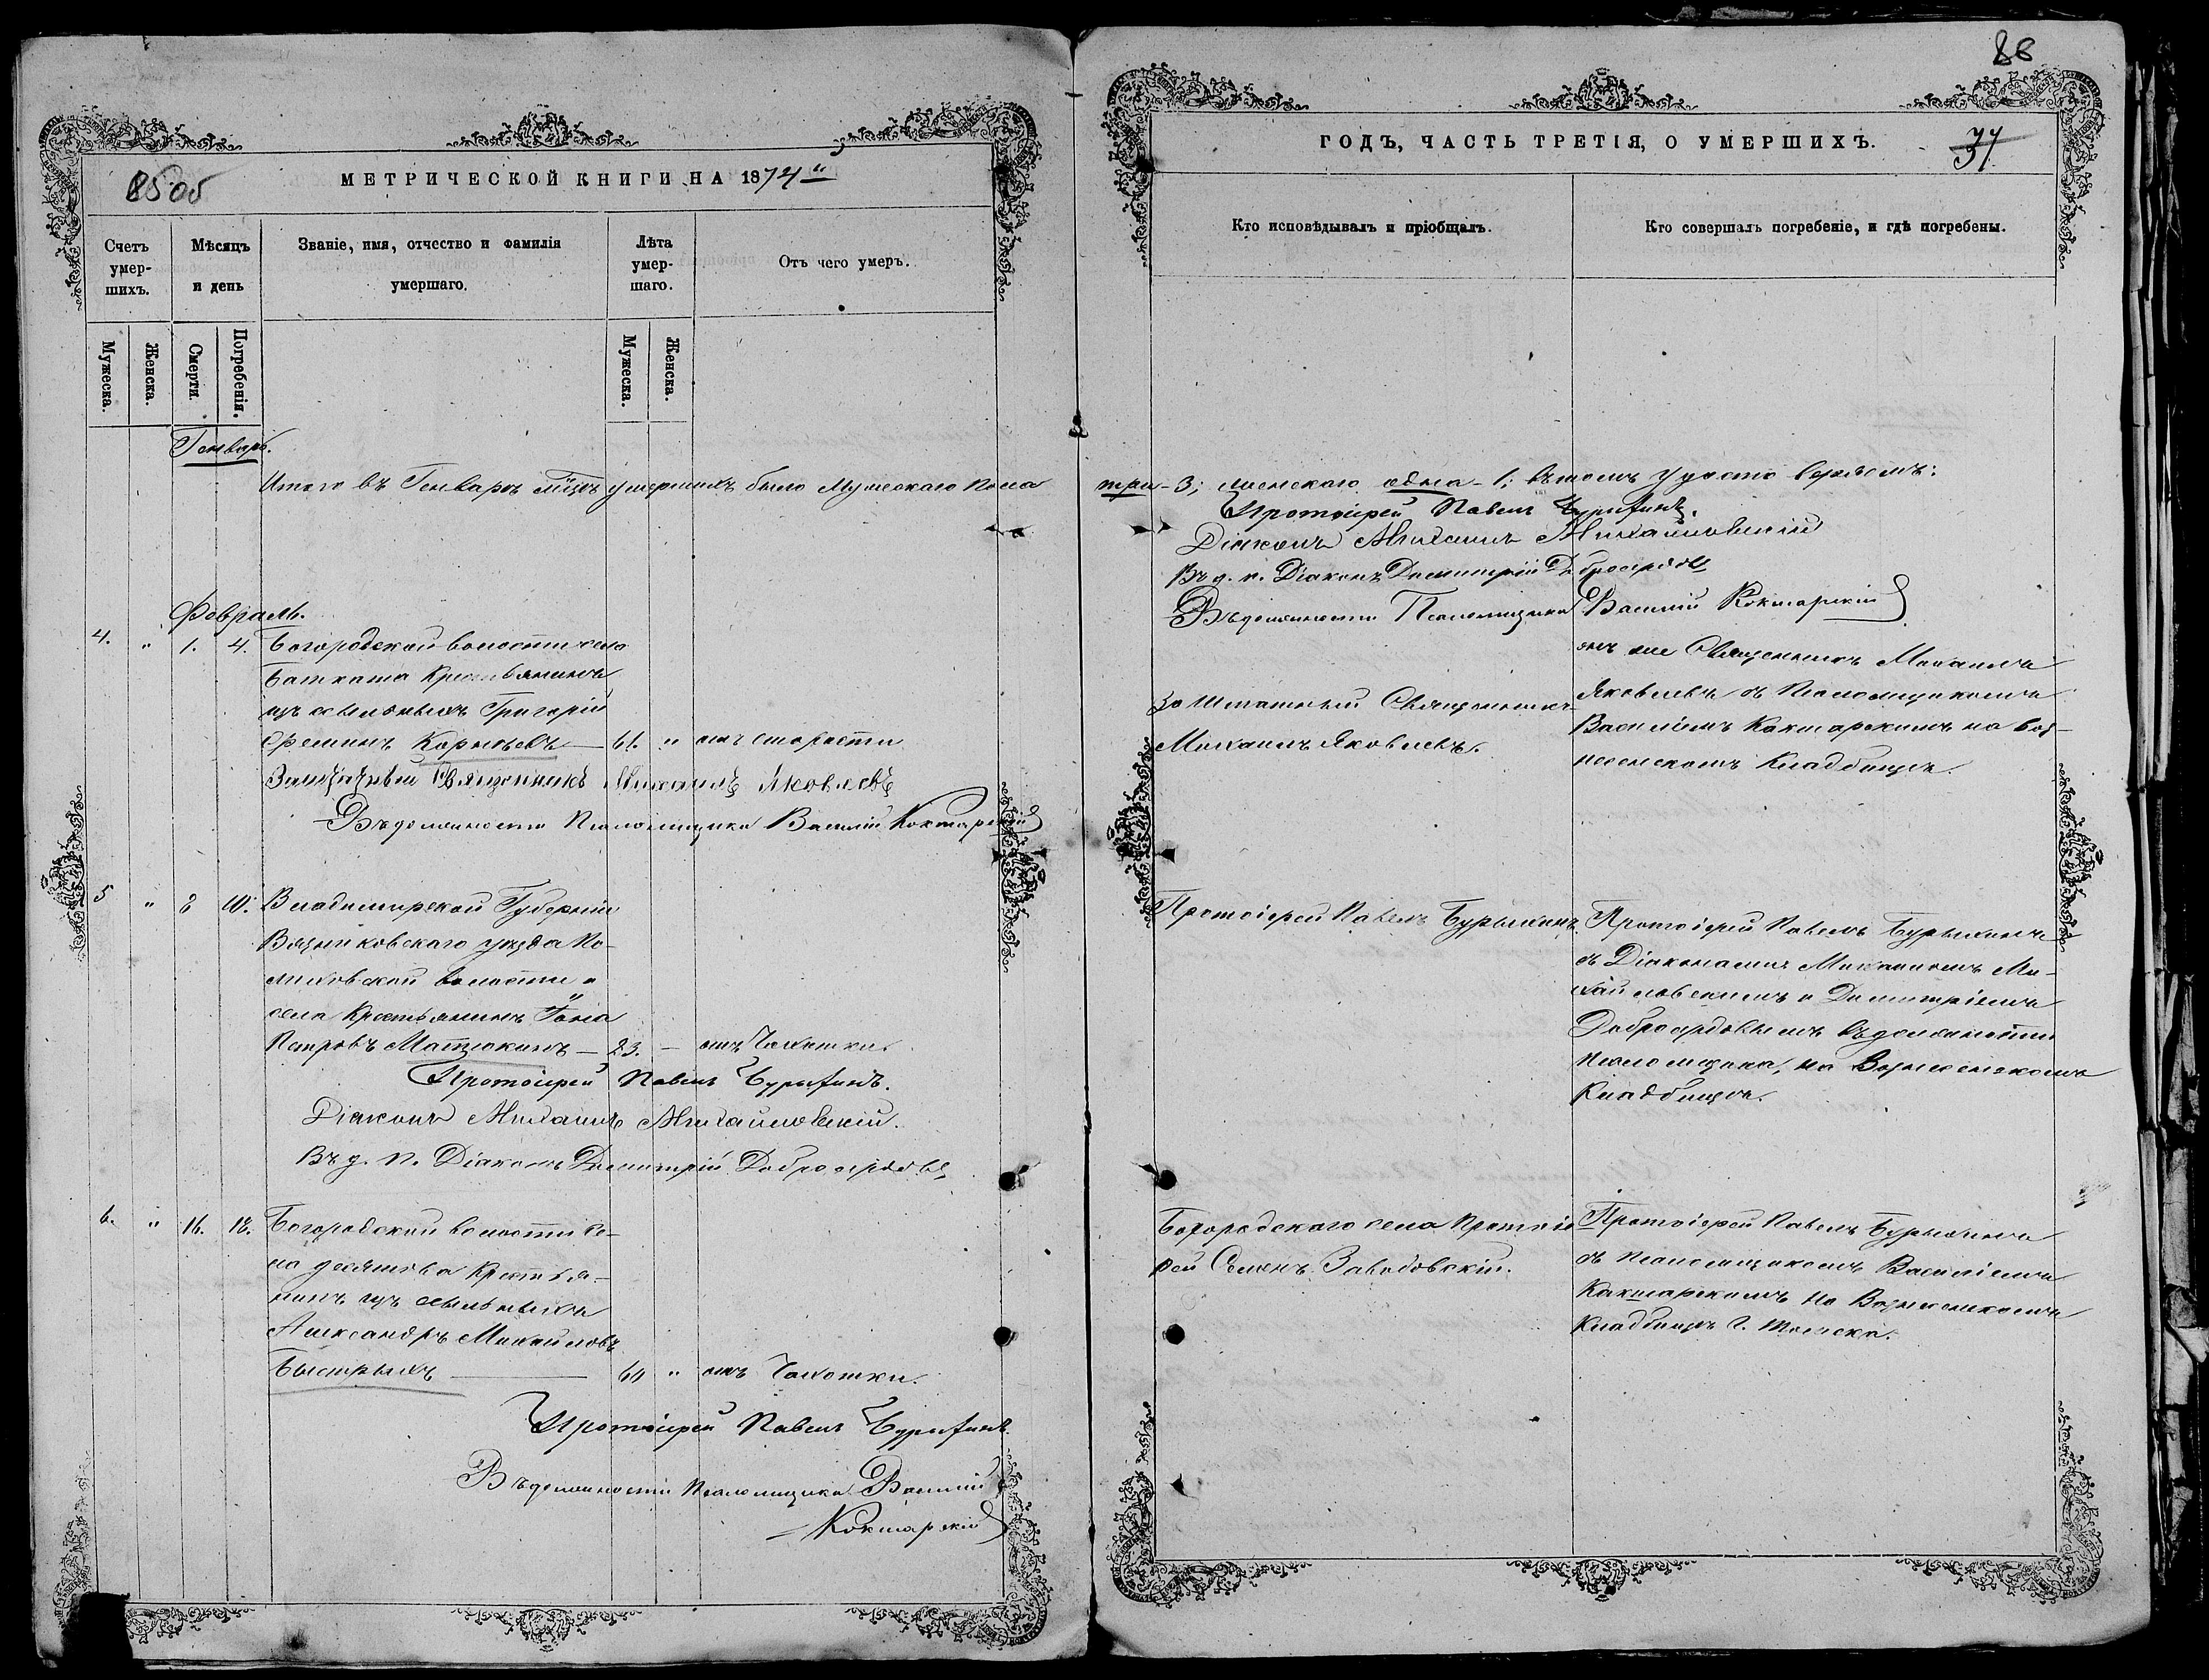 88
2505
МЕТРИЧЕСКОЙ КНИГИ НА 1874й
ГОДЪ, ЧАСТЬ ТРЕТІЯ, О УМЕРШИХЪ.
37.
Счетъ умер-шихъ.
Мѣсяцъ и день
Званіе, имя, отчество и фамилія умершаго.
Лѣта умер-шаго.
Отъ чего умеръ.
Кто исповѣдывалъ и пріобщалъ.
Кто совершалъ погребеніе, и гдѣ погребены.
Мужеска.
Женска.
Смерти.
Погребенія.
Мужеска.
Женска.
Генварь.
Итого въ Генварѣ мцѣ умершихъ было Мужескаго пола
три - 3; женскаго одна - 1; въ томъ удостовѣряемъ:
Протоіерей Павелъ Бурыхинъ.
Діаконъ Михаилъ Михайловскій
Въ д. п. Діаконъ Димитрій Добросердовъ
Въ должности Псаломщика Василій Кокшарскій
Февраль.
4. " 1. 4. Богородской волости села
Батката Крестьянинъ
изъ ссыльныхъ Григорій
Ереминъ Корньевъ — 61. " отъ старости
Заштатный Священникъ Михаилъ Яковлевъ
Въ должности Псаломщика Василій Кокшарскій
Заштатный Священникъ
Михаилъ Яковлевъ.
онъ же Священникъ Михаилъ
Яковлевъ съ Псаломщикомъ
Василіемъ Кокшарскимъ на Воз-
несенскомъ Кладбищѣ.
5 " 8 10. Владимирской Губерніи
Вязниковскаго уѣзда
волости
села Крестьянинъ
Петровъ Матюкинъ — 23. — отъ Чахотки.
Протоіерей Павелъ Бурыхинъ.
Діаконъ Михаилъ Михайловскій.
Въ д. п. Діаконъ Димитрій Добросердовъ
Протоіерей Павелъ Бурыхинъ.
Протоіерей Павелъ Бурыхинъ
съ Діаконами Михаиломъ Ми-
хайловскимъ и Димитріемъ
Добросердовымъ въ должности
псаломщика, на Вознесенскомъ
Кладбищѣ.
6. " 16. 18. Богородской волости Се-
ла Десятова Крестья-
нинъ изъ ссыльныхъ
Александръ Михайловъ
Быстрыхъ — 60 " отъ Чахотки.
Протоіерей Павелъ Бурыхинъ.
Въ должности Псаломщика Василій
Кокшарскій
Богородскаго села Протоіе
рей Семенъ Заводовскій.
Протоіерей Павелъ Бурыхинъ
съ Псаломщикомъ Василіемъ
Какшарскимъ на Вознесенскомъ
Кладбищѣ г. Томска.